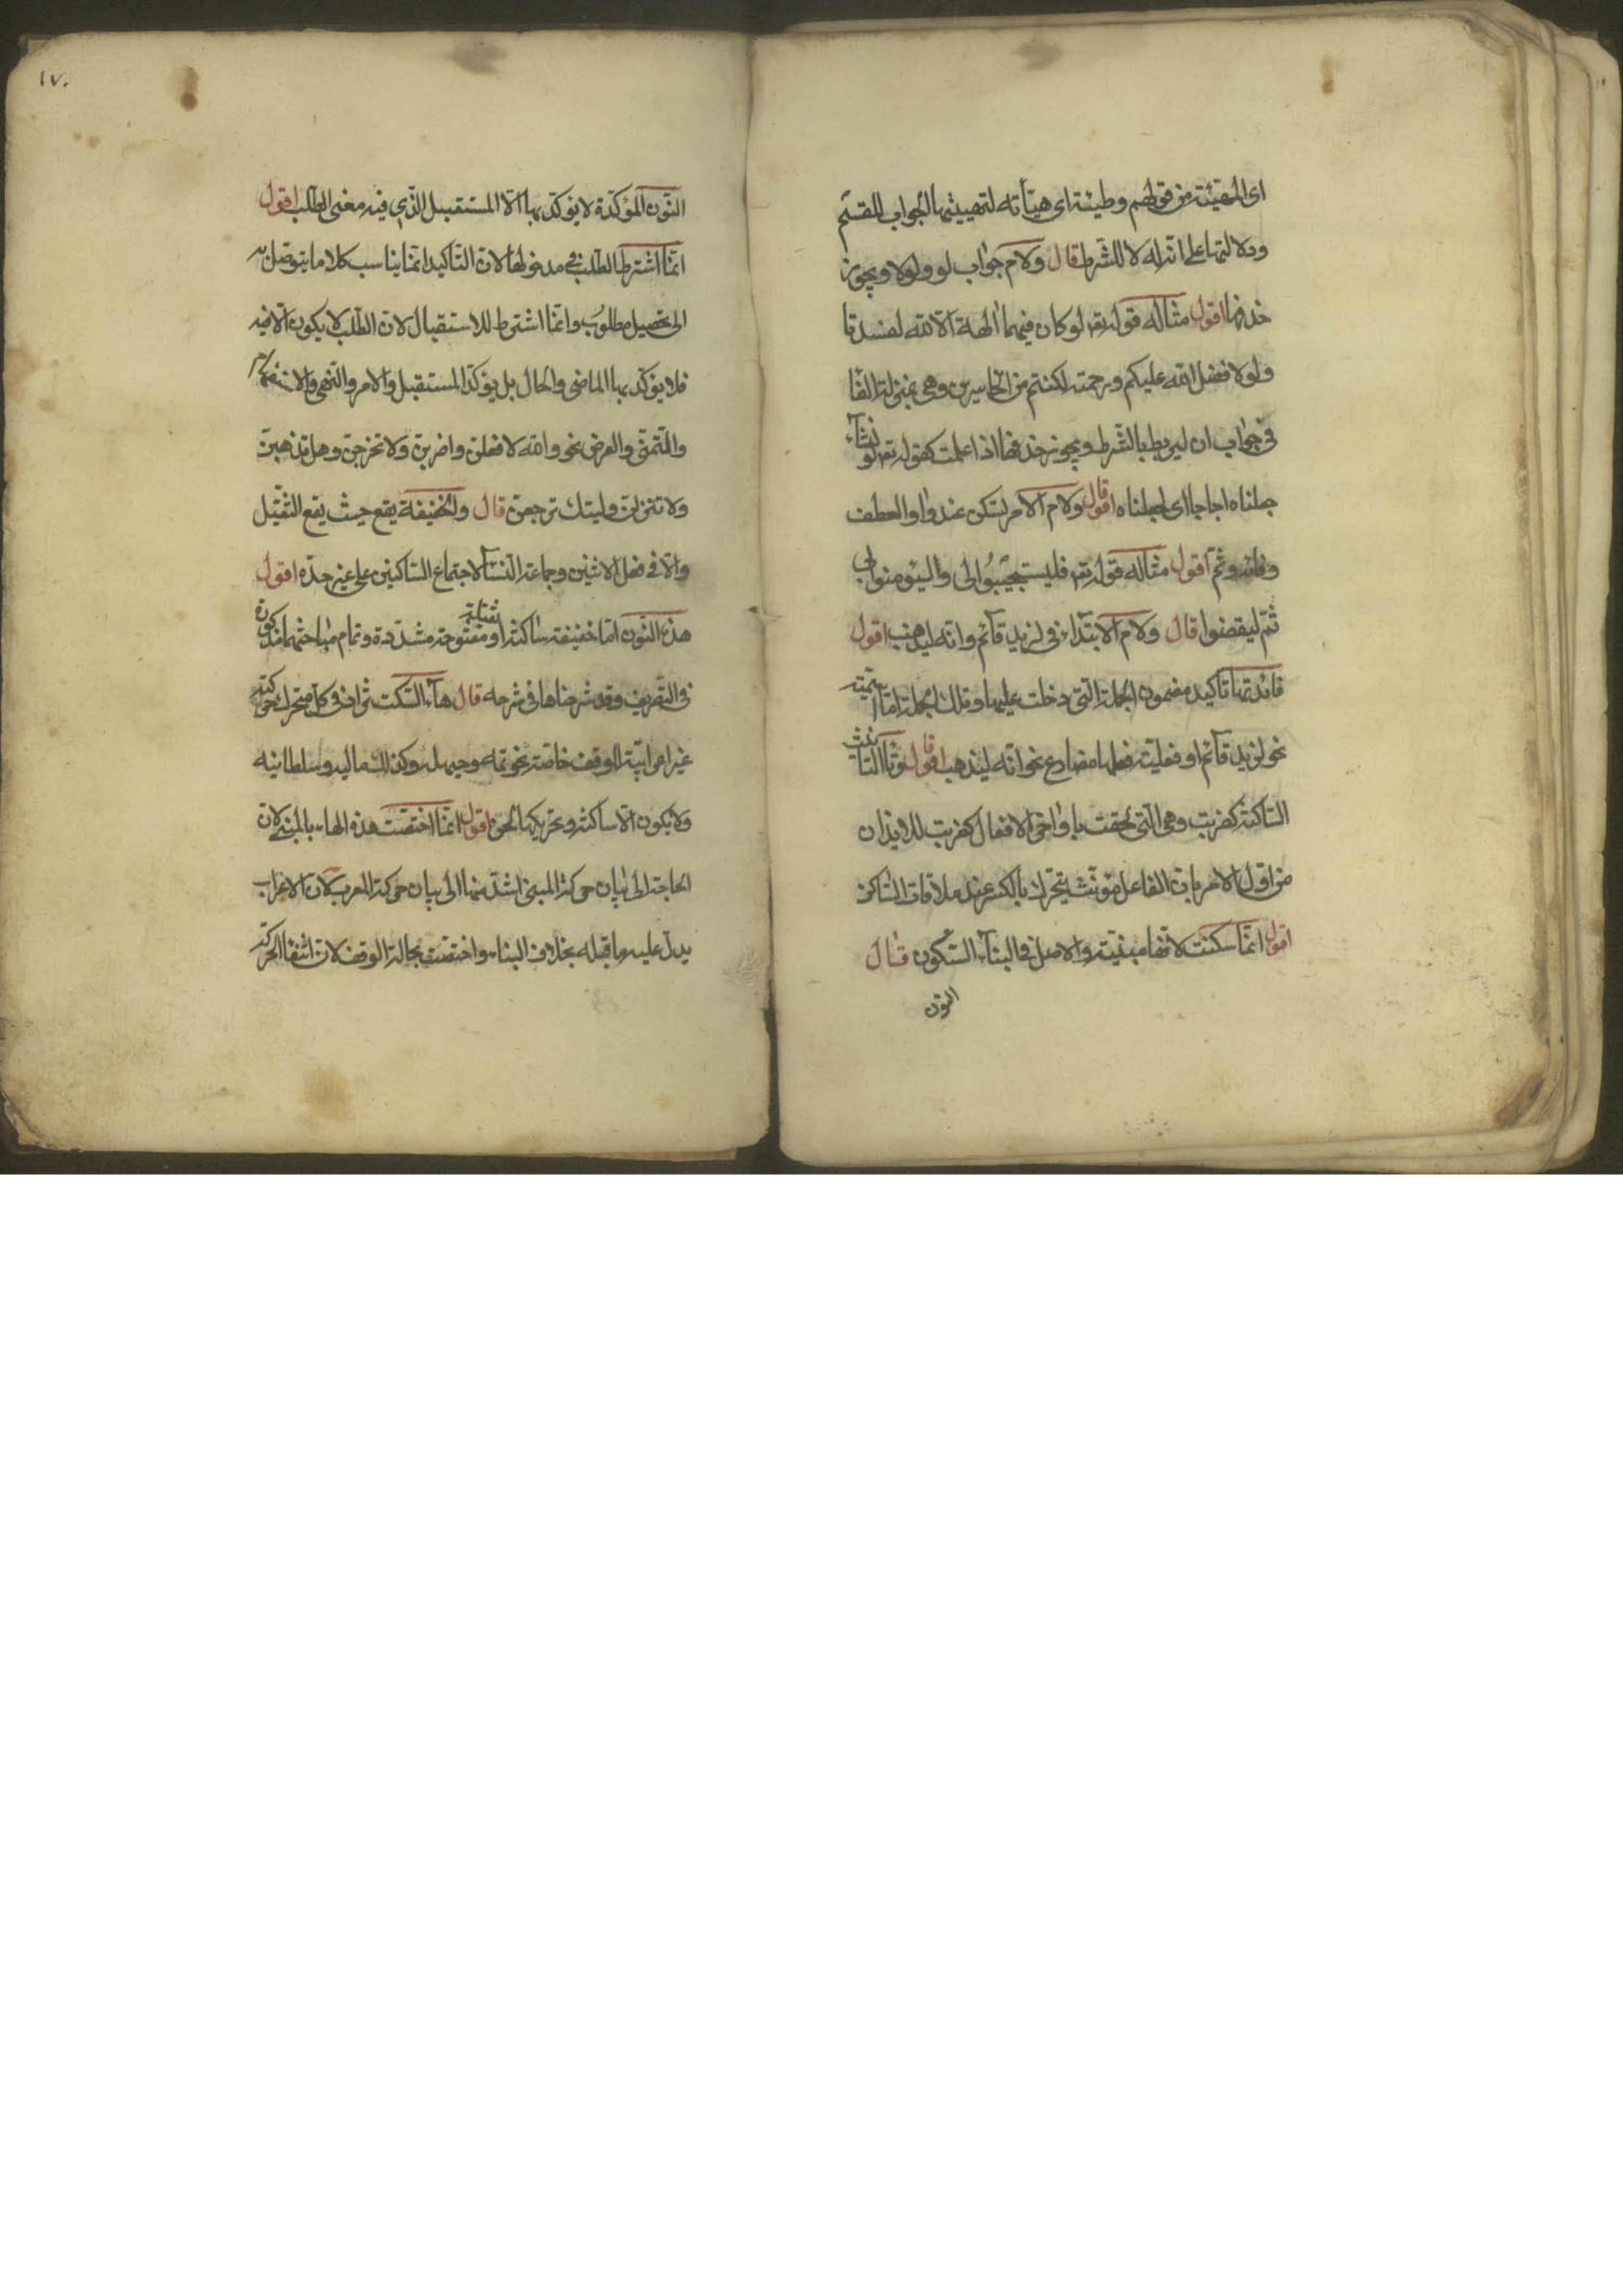 اى المهيئة من قولهم وطيئة اى هيأته لتهييئها الجواب للقسم
ودلالتها على انه له لا للشرط قال ولام جواب لو ولولا ويجوز
حذفها اقول مثاله قوله تعم لو كان فيهما الهة الا الله لفسدتا
ولولا فضل الله عليكم ورحمته لكنتم من الخاسرين وهى بمنزلة الفا
فى جواب ان ليربط بالشرط ويجوز حذفها اذا علمت كقوله تعم لو نشآء
جعلناه اجاجا اى لجعلناه قال ولام الامر تسكن عند واو العطف
وفائه وثم اقول مثاله قوله تعم فليستجيبوا لى واليؤمنوا بى
ثم ليقضوا قال ولام الابتداء فى لزيد قائم وانه ليذهب اقول
فائدتها تاكيد مضمون الجملة التى دخلت عليها وتلك الجملة اما اسمية
نحو لزيد قائم او فعلية فعلها مضارع نحو انه ليذهب قال وتا التانيث
الساكنة كضربت وهى التى لحقت باواخر الافعال كضربت للايذان
من اول الامر بان الفاعل مؤنث يتحرك بالكسر عند ملاقات الساكن
اقول انما سكنت لانها مبنية والاصل فى البنآء السكون قال
النون
١٧٠
النون المؤكدة لا يؤكد بها الا المستقبل الذى فيه معنى الطلب اقول
انما اشترط الطلب فى مدخولها لان التاكيد انما يناسب كلاما يتوصل به
الى تحصيل مطلوب وانما اشترط للاستقبال لان الطلب لا يكون الا فيه
فلا يؤكد بها الماضى والحال بل يؤكد المستقبل والامر والنهى والاستفهام
والتمنى والعرض نحو والله لافعلن واضربن ولا تخرجن وهل تذهبن
ولا تنزلن وليتك ترجعن قال والخفيفة يقع حيث يقع الثقيل
والا فى فعل الاثنين وجماعة النسآء لاجتماع الساكنين على غير حده اقول
هذه النون اما خفيفة ساكنة او ثقيلة مفتوحة مشددة وتمام مباحثهما مذكورة
فى التصريف وقد شرحناها فى شرحه قال هآء السكت تزاد فى كل متحرك حركته
غير اعرابية للوقف خاصة نحو ثمه وحيهله وماليه وسلطانيه
ولا يكون الا ساكنة وتحريكها لحن اقول انما اختصت هذه الهاء بالمبنى لان
الحاجة الى بيان حركة المبنى اشد منها الى بيان حركة المعرب لان الاعراب
يدل عليه ما قبله بخلاف البناء واختصت بحالة الوقف لان انتفا الحركة